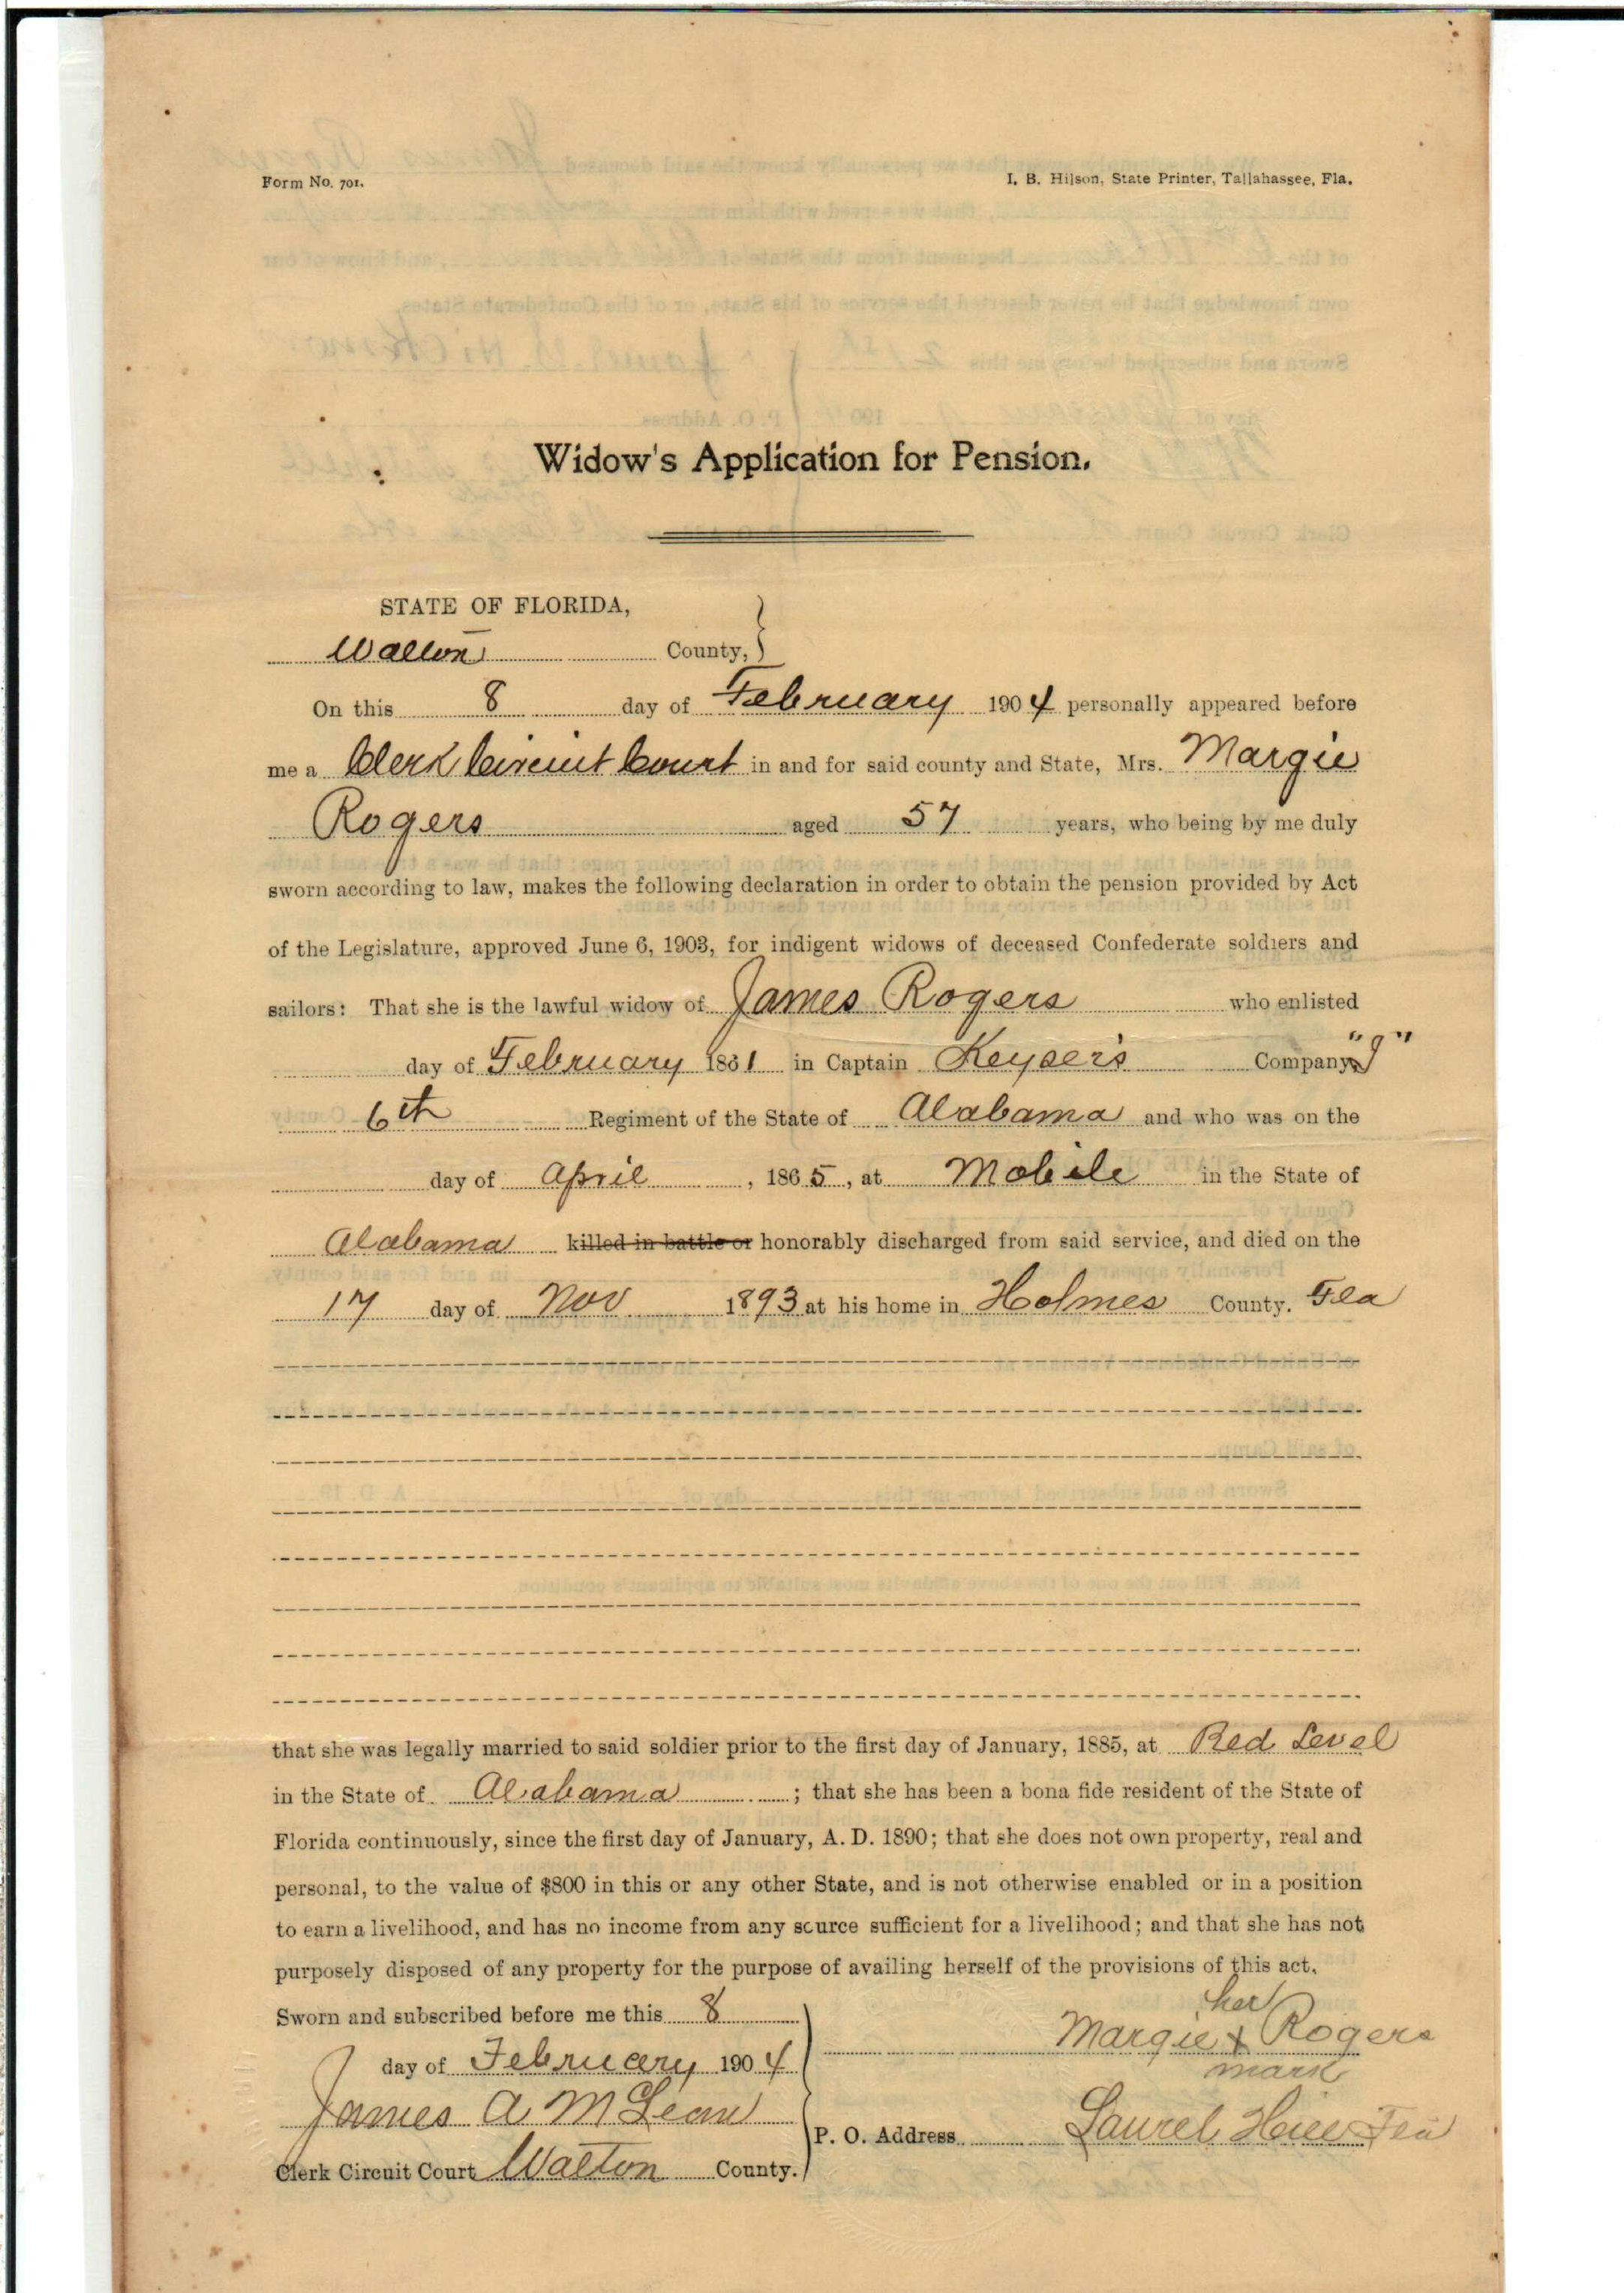 Form No. 701.
I. B. Hilson, State Printer, Tallahassee, Fla.
Widow's Application for Pension.
STATE OF FLORIDA,
Walton County,
On this 8 day of February 1904 personally appeared before
me a Clerk Circuit Court in and for said county and State, Mrs. Margie
Rogers aged 57 years, who being by me duly
sworn according to law, makes the following declaration in order to obtain the pension provided by Act
of the Legislature, approved June 6, 1903, for indigent widows of deceased Confederate soldiers and
sailors: That she is the lawful widow of James Rogers who enlisted
day of February 1861 in Captain Keyser's Company "J"
6th Regiment of the State of Alabama and who was on the
day of April, 1865, at Mobile in the State of
Alabama killed in battle or honorably discharged from said service, and died on the
17 day of Nov 1893 at his home in Holmes County. Fla
that she was legally married to said soldier prior to the first day of January, 1885, at Red Level
in the State of Alabama; that she has been a bona fide resident of the State of
Florida continuously, since the first day of January, A. D. 1890; that she does not own property, real and
personal, to the value of $800 in this or any other State, and is not otherwise enabled or in a position
to earn a livelihood, and has no income from any source sufficient for a livelihood; and that she has not
purposely disposed of any property for the purpose of availing herself of the provisions of this act.
Sworn and subscribed before me this 8
day of February 1904
James A McLean
Clerk Circuit Court Walton County.
her
Margie x Rogers
mark
P. O. Address Laurel Hill Fla